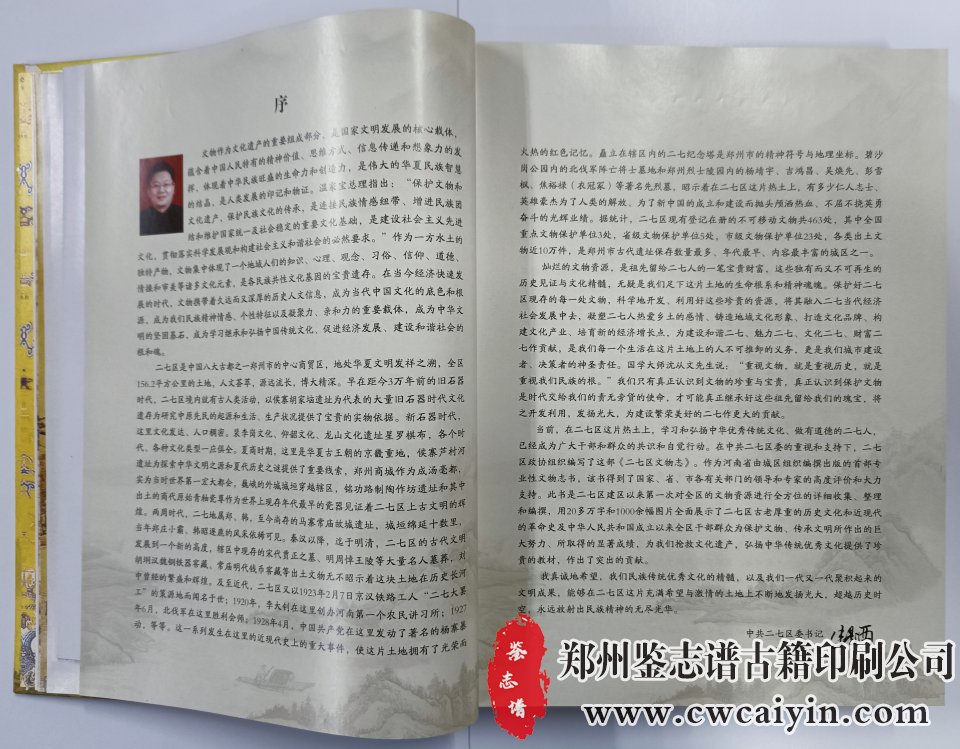 序
文物作为文化遗产的重要组成部分，是国家文明发展的核心载体，
蕴含着中国人民特有的精神价值、思维方式、信息传递和想象力的发
挥，体现着中华民族旺盛的生命力和创造力，是伟大的华夏民族智慧
的结晶，是人类发展的印记和物证。温家宝总理指出：“保护文物和
文化遗产，保护民族文化的传承，是连接民族情感纽带、增进民族团
结和维护国家统一及社会稳定的重要文化基础，是建设社会主义先进
文化，贯彻落实科学发展观和构建社会主义和谐社会的必然要求。”作为一方水土的
独特产物，文物集中体现了一个地域人们的知识、心理、观念、习俗、信仰、道德、
情操和审美等诸多文化元素，是各民族共性文化基因的宝贵遗存。在当今经济快速发
展的时代，文物携带着久远而又深厚的历史人文信息，成为当代中国文化的底色和根
源，成为我们民族精神情感、个性特征以及凝聚力、亲和力的重要载体，成为中华文
明的坚固基石，成为学习继承和弘扬中国传统文化、促进经济发展、建设和谐社会的
根和魂。
二七区是中国八大古都之一郑州市的中心商贸区，地处华夏文明发祥之溯，全区
156.2平方公里的土地，人文荟萃，源远流长，博大精深。早在距今3万年前的旧石器
时代，二七区境内就有古人类活动，以侯寨胡家垴遗址为代表的大量旧石器时代文化
遗存为研究中原先民的起源和生活、生产状况提供了宝贵的实物依据。新石器时代，
这里文化发达、人口稠密。裴李岗文化、仰韶文化、龙山文化遗址星罗棋布，各个时
代、各种文化类型一应俱全。夏商时期，这里是华夏古王朝的京畿重地，侯寨芦村河
遗址为探索中华文明之源和夏代历史之谜提供了重要线索，郑州商城作为成汤亳都，
实为当时世界第一宏大都会，巍峨的外城城垣穿越辖区，铭功路制陶作坊遗址和其中
出土的商代原始青釉瓷尊作为世界上现存年代最早的瓷器见证着二七区上古文明的辉
煌。两周时代，二七地属郑、韩，至今尚存的马寨常庙故城遗址，城垣绵延十数里，
当年郑庄小霸、韩昭逐鹿的风采依稀可见。秦汉以降，迄于明清，二七区的古代文明
发展到一个新的高度，辖区中现存的宋代贾正之墓、明周悼王陵等大量名人墓葬，刘
胡垌汉魏钢铁器窖藏、常庙明代钱币窖藏等出土文物无不昭示着这块土地在历史长河
中曾经的繁盛和辉煌。及至近代，二七区又以1923年2月7日京汉铁路工人“二七大罢
工”的策源地而闻名于世；1920年，李大钊在这里创办河南第一个农民讲习所；1927
年6月，北伐军在这里胜利会师；1928年4月，中国共产党在这里发动了著名的杨寨暴
动，等等。这一系列发生在这里的近现代史上的重大事件，使这片土地拥有了光荣而
火热的红色记忆。矗立在辖区内的二七纪念塔是郑州市的精神符号与地理坐标。碧沙
岗公园内的北伐军阵亡将士墓地和郑州烈士陵园内的杨靖宇、吉鸿昌、吴焕先、彭雪
枫、焦裕禄（衣冠冢）等著名先烈墓，昭示着在二七区这片热土上，有多少仁人志士、
英雄豪杰为了人类的解放、为了新中国的成立和建设而抛头颅洒热血、不屈不挠英勇
奋斗的光辉业绩。据统计，二七区现有登记在册的不可移动文物共463处，其中全国
重点文物保护单位3处，省级文物保护单位5处，市级文物保护单位23处，各类出土文
物近10万件，是郑州市古代遗址保存数量最多、年代最早、内容最丰富的城区之一。
灿烂的文物资源，是祖先留给二七人的一笔宝贵财富，这些独有而又不可再生的
历史见证与文化精髓，无疑是我们足下这片土地的生命根系和精神魂魄。保护好二七
区现存的每一处文物，科学地开发、利用好这些珍贵的资源，将其融入二七当代经济
社会发展中去，凝塑二七人热爱乡土的感情、铸造地域文化形象、打造文化品牌、构
建文化产业、培育新的经济增长点，为建设和谐二七、魅力二七、文化二七、财富二
七作贡献，是我们每一个生活在这片土地上的人不可推卸的义务，更是我们城市建设
者、决策者的神圣责任。国学大师沈从文先生说：“重视文物，就是重视历史，就是
重视我们民族的根。”我们只有真正认识到文物的珍重与宝贵，真正认识到保护文物
是时代交给我们的责无旁贷的使命，才可能真正继承好这些祖先留给我们的瑰宝，将
之开发利用，发扬光大，为建设繁荣美好的二七作更大的贡献。
当前，在二七区这片热土上，学习和弘扬中华优秀传统文化、做有道德的二七人，
已经成为广大干部和群众的共识和自觉行动。在中共二七区委的重视和支持下，二七
区政协组织编写了这部《二七区文物志》。作为河南省由城区组织编撰出版的首部专
业性文物志书，该书得到了国家、省、市各有关部门的领导和专家的高度评价和大力
支持。此书是二七区建区以来第一次对全区的文物资源进行全方位的详细收集、整理
和编撰，用20多万字和1000余幅图片全面展示了二七区古老厚重的历史文化和近现代
的革命史及中华人民共和国成立以来全区干部群众为保护文物、传承文明所作出的巨
大努力、所取得的显著成绩，为我们抢救文化遗产，弘扬中华传统优秀文化提供了珍
贵的教材，作出了突出的贡献。
我真诚地希望，我们民族传统优秀文化的精髓，以及我们一代又一代聚积起来的
文明成果，能够在二七区这片充满希望与激情的土地上不断地发扬光大，超越历史时
空，永远放射出民族精神的无尽光华。
中共二七区委书记
鉴志谱
郑州鉴志谱古籍印刷公司
www.cwcaiyin.com